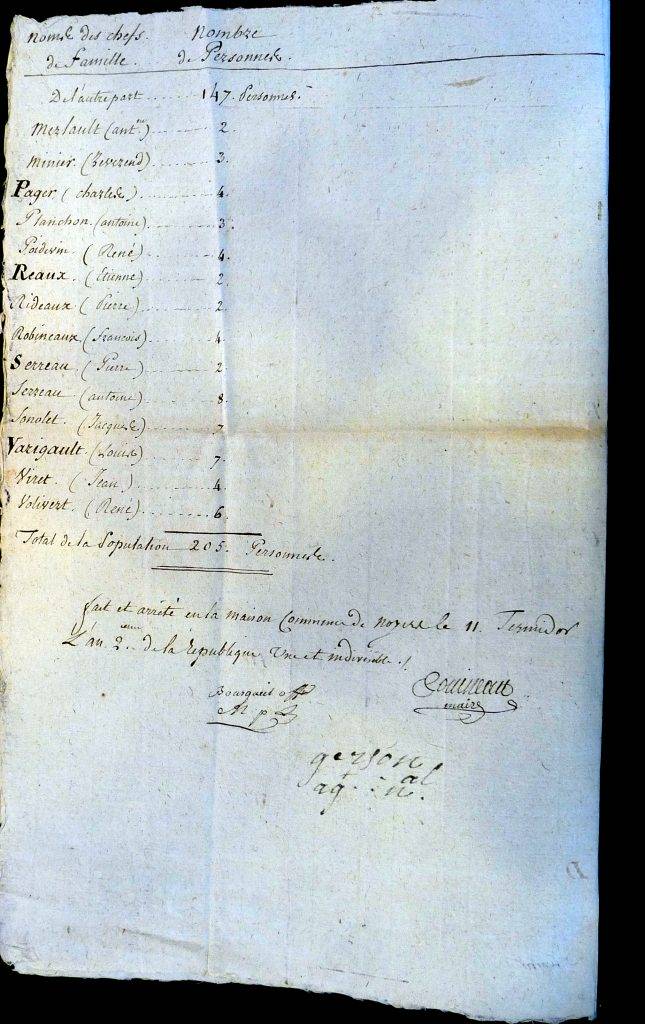 noms des chefs Nombre
de famille. de Personnes.
De l'autre part ........ 147. Personnes.
Merlault (ant.ne) ........ 2.
Minier (Reverend) ........ 3.
Pager (charles) ........ 4.
Planchon (antoine) ........ 3.
Poidevin (René) ........ 4.
Reaux (Etienne) ........ 2.
Rideaux (Pierre) ........ 2.
Robineaux (francois) ........ 4.
Serreau (Pierre) ........ 2.
Serreau (antoine) ........ 8.
Sonolet (Jacques) ........ 7.
Varigault (Louis) ........ 7.
Viret (Jean) ........ 4.
Volivert (René) ........ 6.
Total de la Population 205. Personnes.
fait et arrêté en la maison Commune de noyers le 11. Termidor
L'an 2.eme de la republique une et indivisible ./.
Bourgueis off
M p
maire
gerson
ag.t n.al